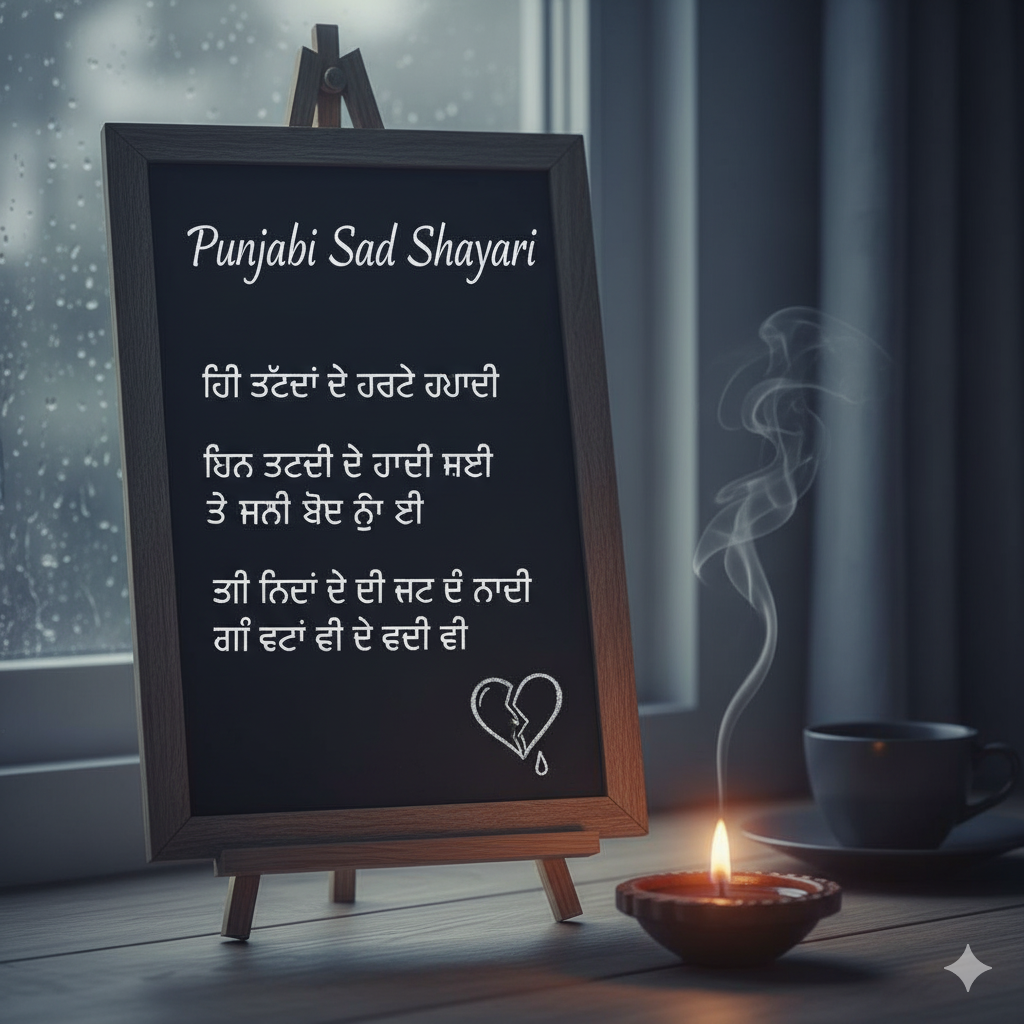 Punjabi Sad Shayari
ਹਿੀ ਤੱਟਦਾਂ ਦੇ ਹਰਟੇ ਹਪਾਦੀ
ਬਿਨ ਤਟਦੀ ਦੇ ਹਾਦੀ ਸ਼ਈ
ਤੇ ਜਨੀ ਬੋਦ ਨੂੰਾ ਈ
ਤਾੀ ਨਿਦਾਂ ਦੇ ਦੀ ਜਟ ਦੰ ਨਾਦੀ
ਵਟਾਂ ਵੀ ਦੇ ਵਦੀ ਵੀ